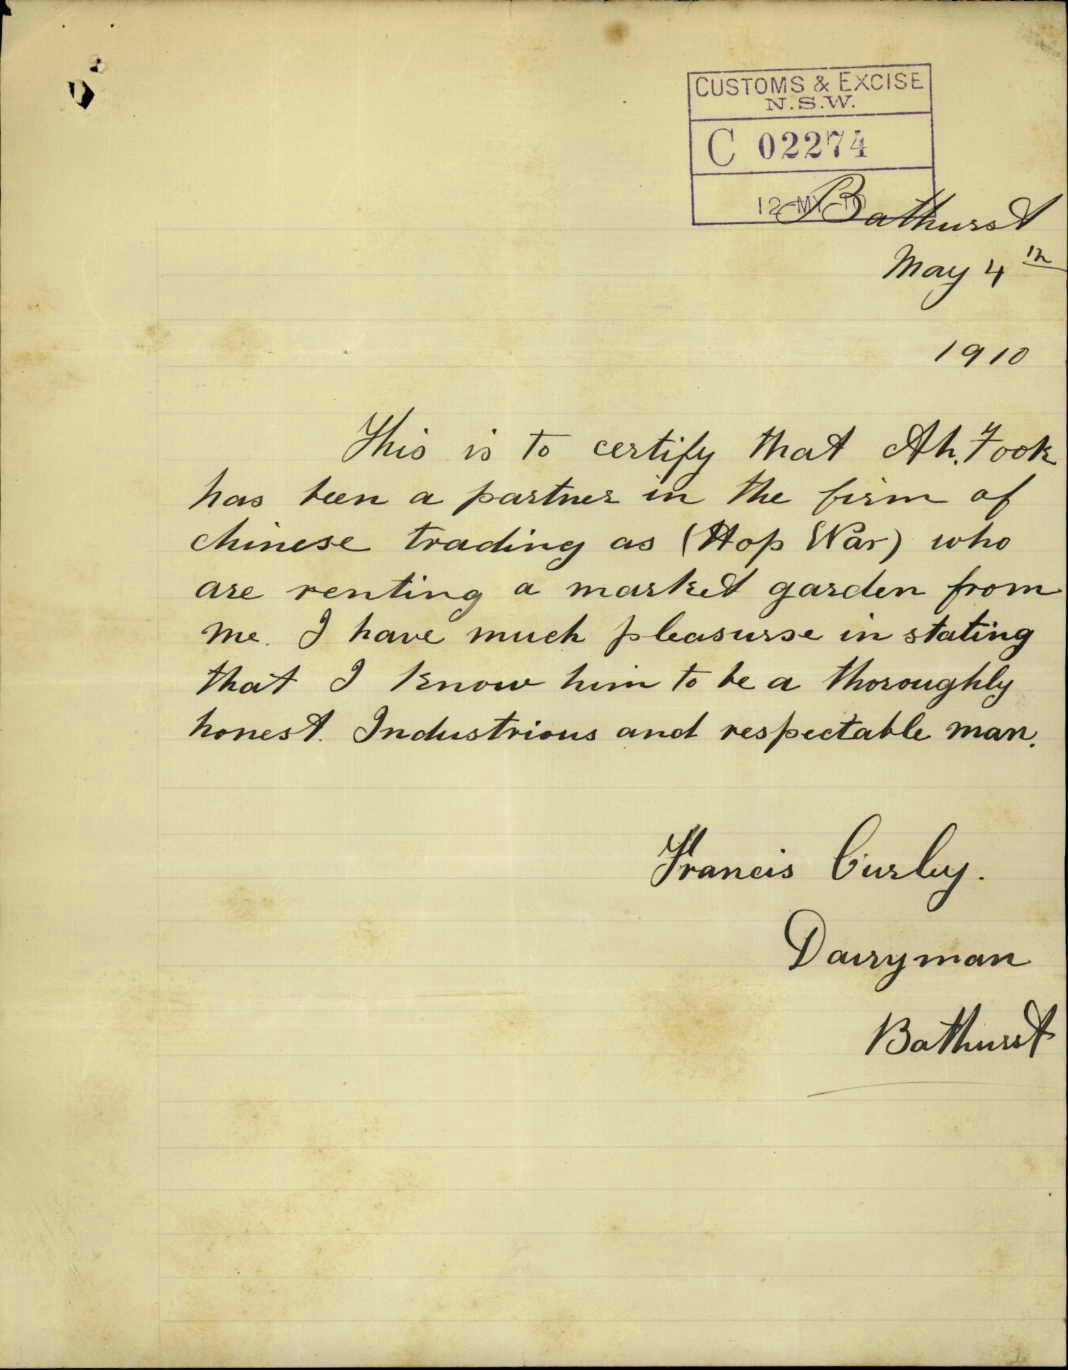 CUSTOMS & EXCISE
N.S.W.
C 02274
12 MY 10
Bathurst
May 4th
1910
This is to certify that Ah. Fook
has been a partner in the firm of
chinese trading as (Hop War) who
are renting a market garden from
me. I have much pleasurse in stating
that I know him to be a thoroughly
honest. Industrious and respectable man.
Francis Curley.
Dairyman
Bathurst